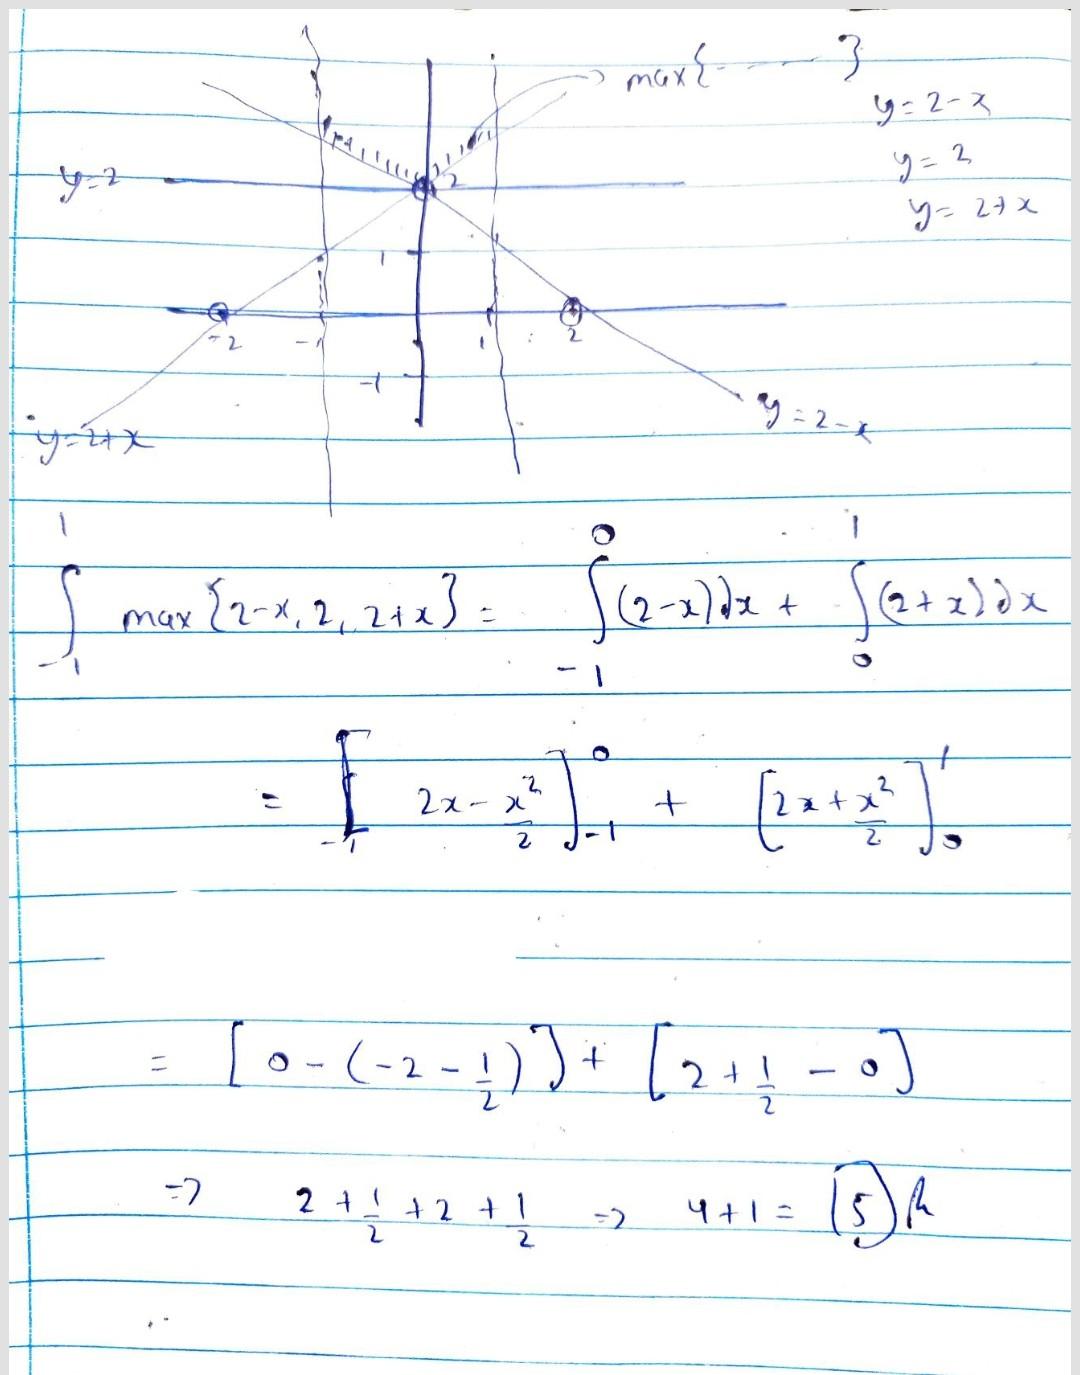 max{- — }
y = 2-x
y = 2
y = 2+x
y=2
2
1
-2
-1
1
2
-1
y=2+x
y=2-x
∫_{-1}^{1} max{2-x, 2, 2+x} = ∫_{-1}^{0} (2-x)dx + ∫_{0}^{1} (2+x)dx
= [2x - x²/2]_{-1}^{0} + [2x + x²/2]_{0}^{1}
= [0-(-2-1/2)] + [2+1/2-0]
=> 2+1/2+2+1/2 => 4+1 = 5